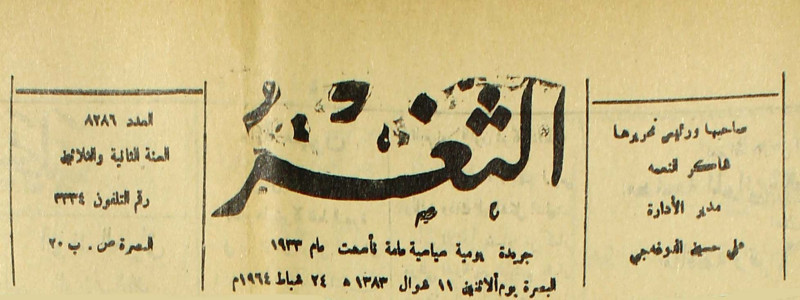 صاحبها ورئيس تحريرها
شاكر النعمه
مدير الأدارة
علي حسين
الثغر
جريدة يومية سياسية عامة تأسست عام ١٩٣٣
البصرة يوم ألاثنين ١١ شوال ١٣٨٣ ه ٢٤ شباط ١٩٦٤م
العدد ٨٢٨٦
السنة الثانية والثلاثين
رقم التلفون ٣٣٣٤
البصرة ص . ب ٢٠